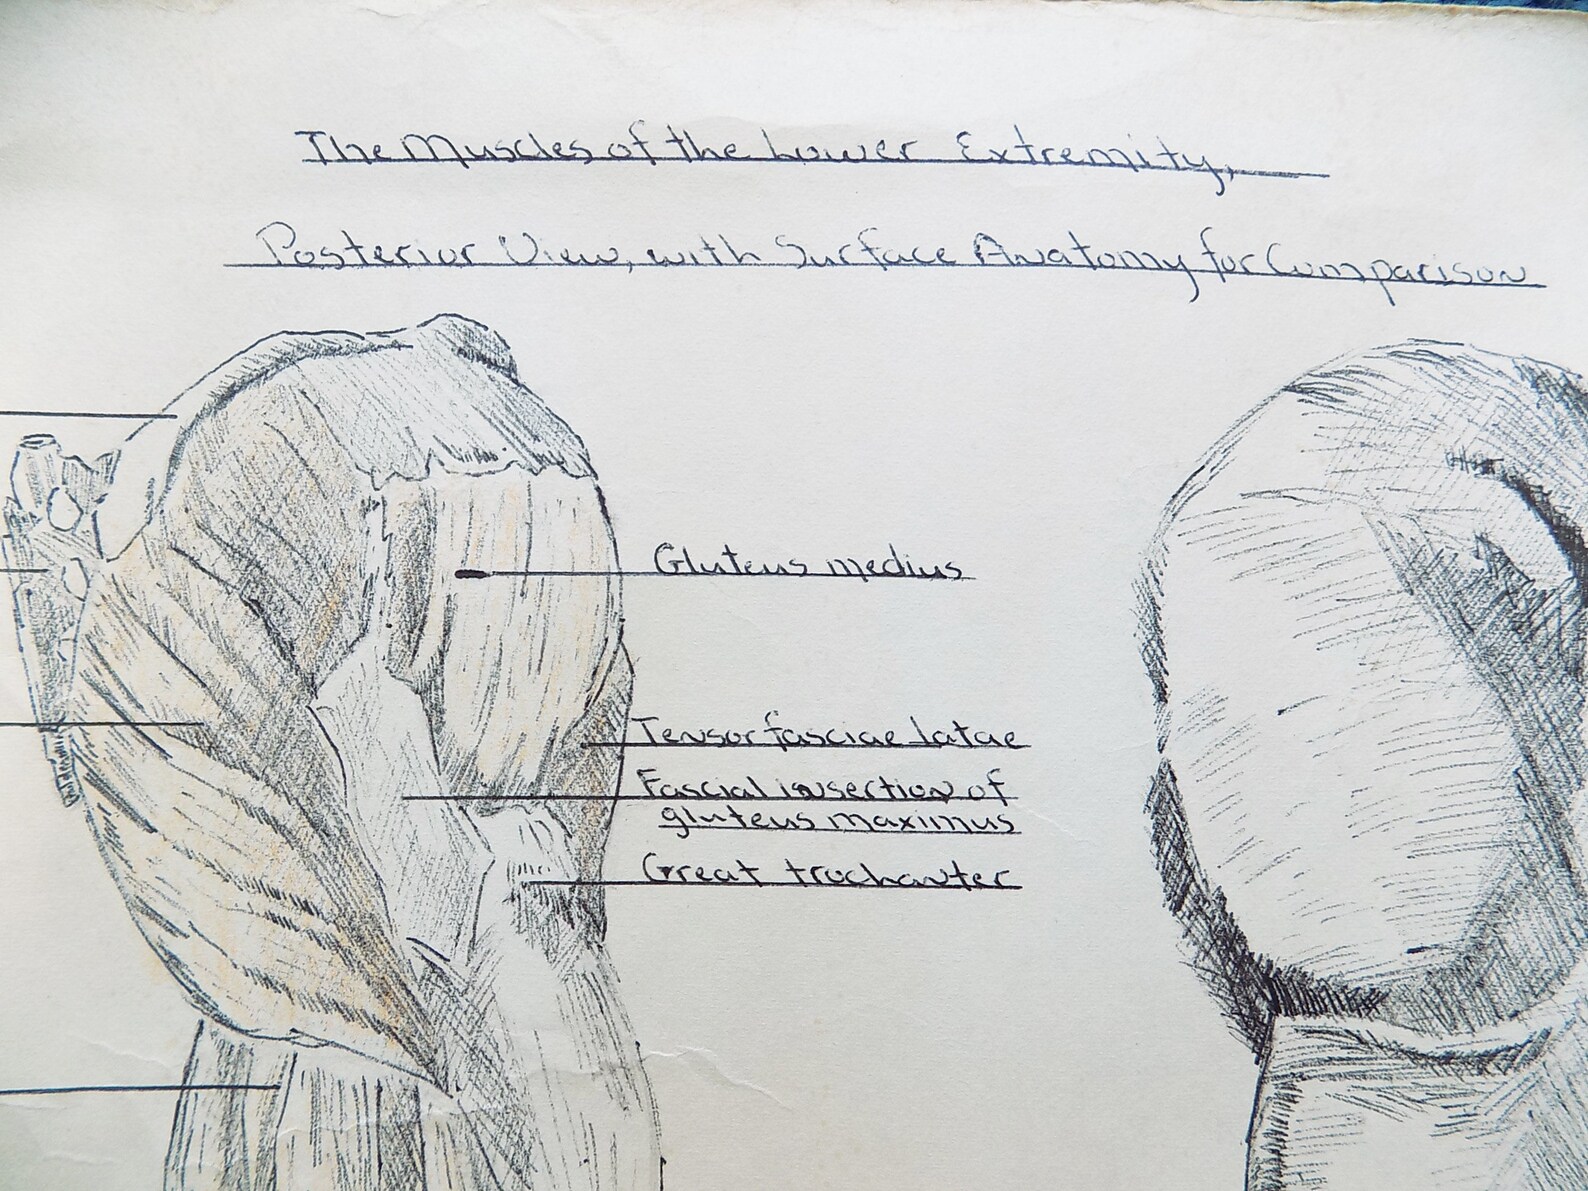 The Muscles of the Lower Extremity,
Posterior View, with Surface Anatomy for Comparison
Gluteus medius
Tensor fasciae latae
Fascial insertion of
gluteus maximus
Great trochanter